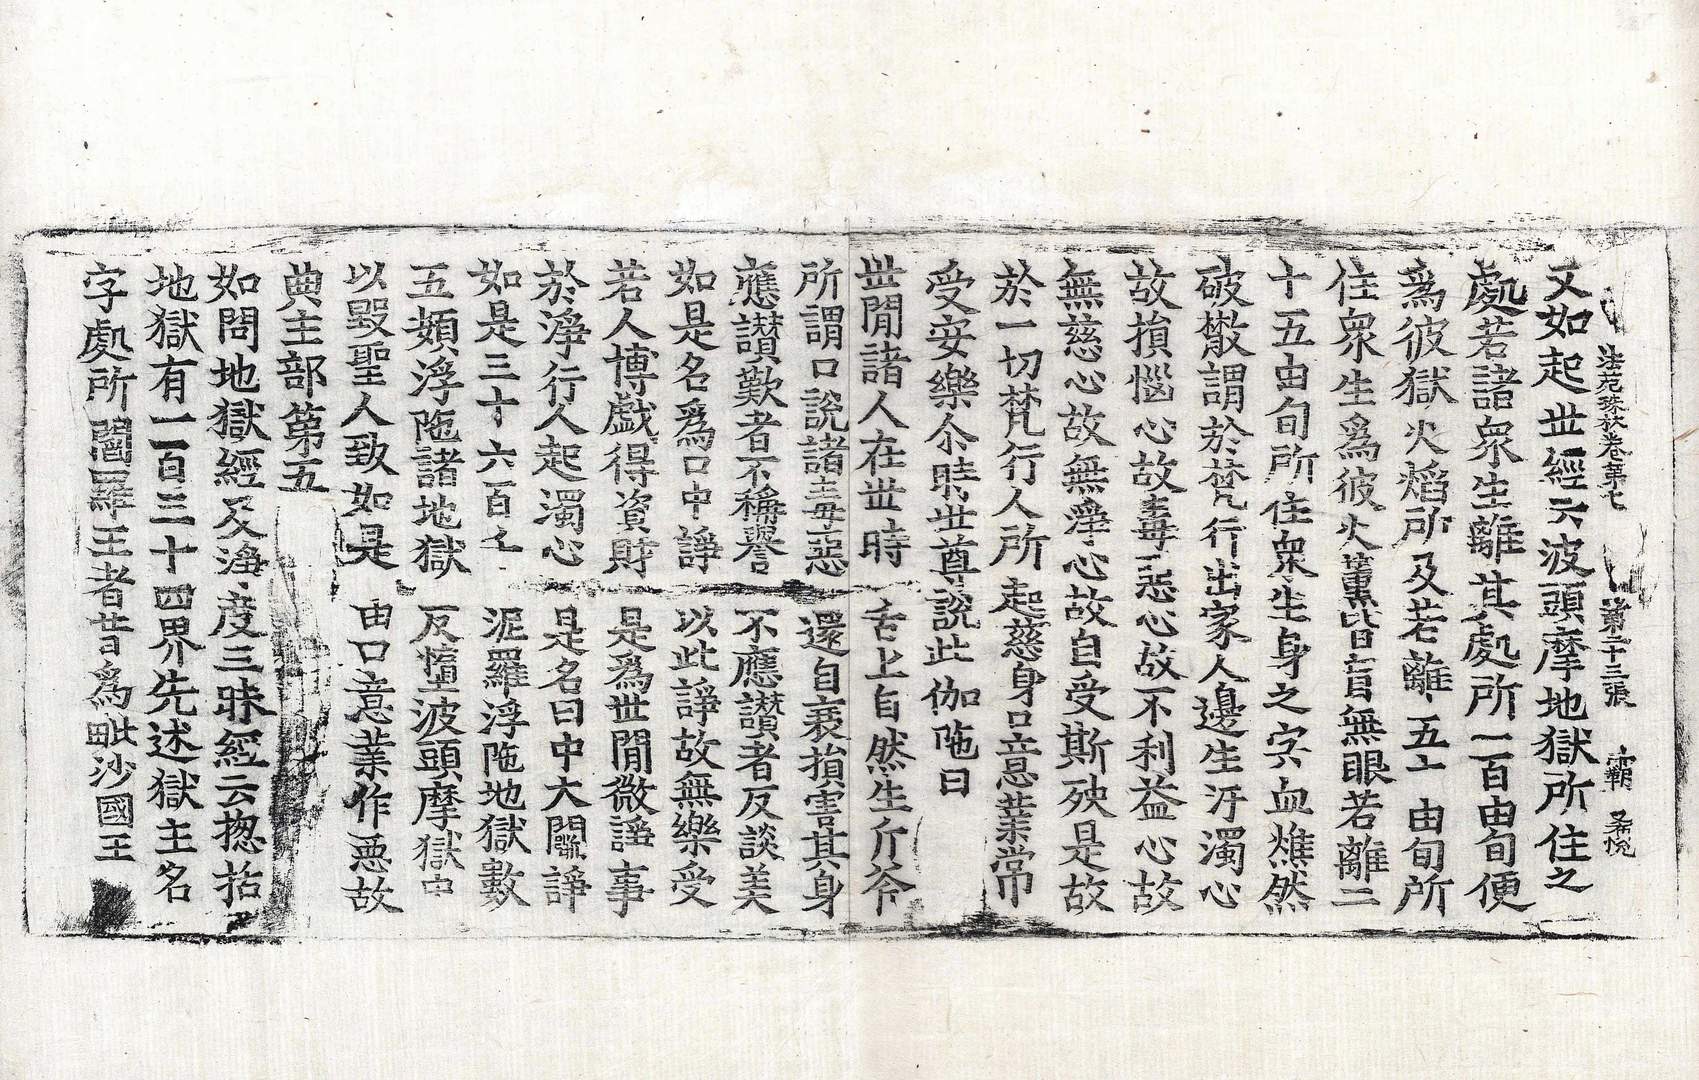 法苑珠林卷第七 第二十三張 霸 希悅
又如起世經云波頭摩地獄所住之
處若諸衆生離其處所一百由旬便
爲彼獄火焰所及若離五十由旬所
住衆生爲彼火薰皆盲無眼若離二
十五由旬所住衆生身之宍血燋然
破散謂於梵行出家人邊生汙濁心
故損惱心故毒惡心故不利益心故
無慈心故無淨心故自受斯殃是故
於一切梵行人所起慈身口意業常
受安樂尒時世尊說此伽陁曰
世閒諸人在世時 舌上自然生斤斧
所謂口說諸毒惡 還自衰損害其身
應讃歎者不稱譽 不應讃者反談美
如是名爲口中諍 以此諍故無樂受
若人博戲得資財 是爲世閒微諍事
於淨行人起濁心 是名曰中大鬪諍
如是三十六百千 泥羅浮陁地獄數
五頞浮陁諸地獄 反墮波頭摩獄中
以毀聖人致如是 由口意業作惡故
典主部第五
如問地獄經及淨度三昧經云揔括
地獄有一百三十四界先述獄主名
字處所閻羅王者昔爲毗沙國王